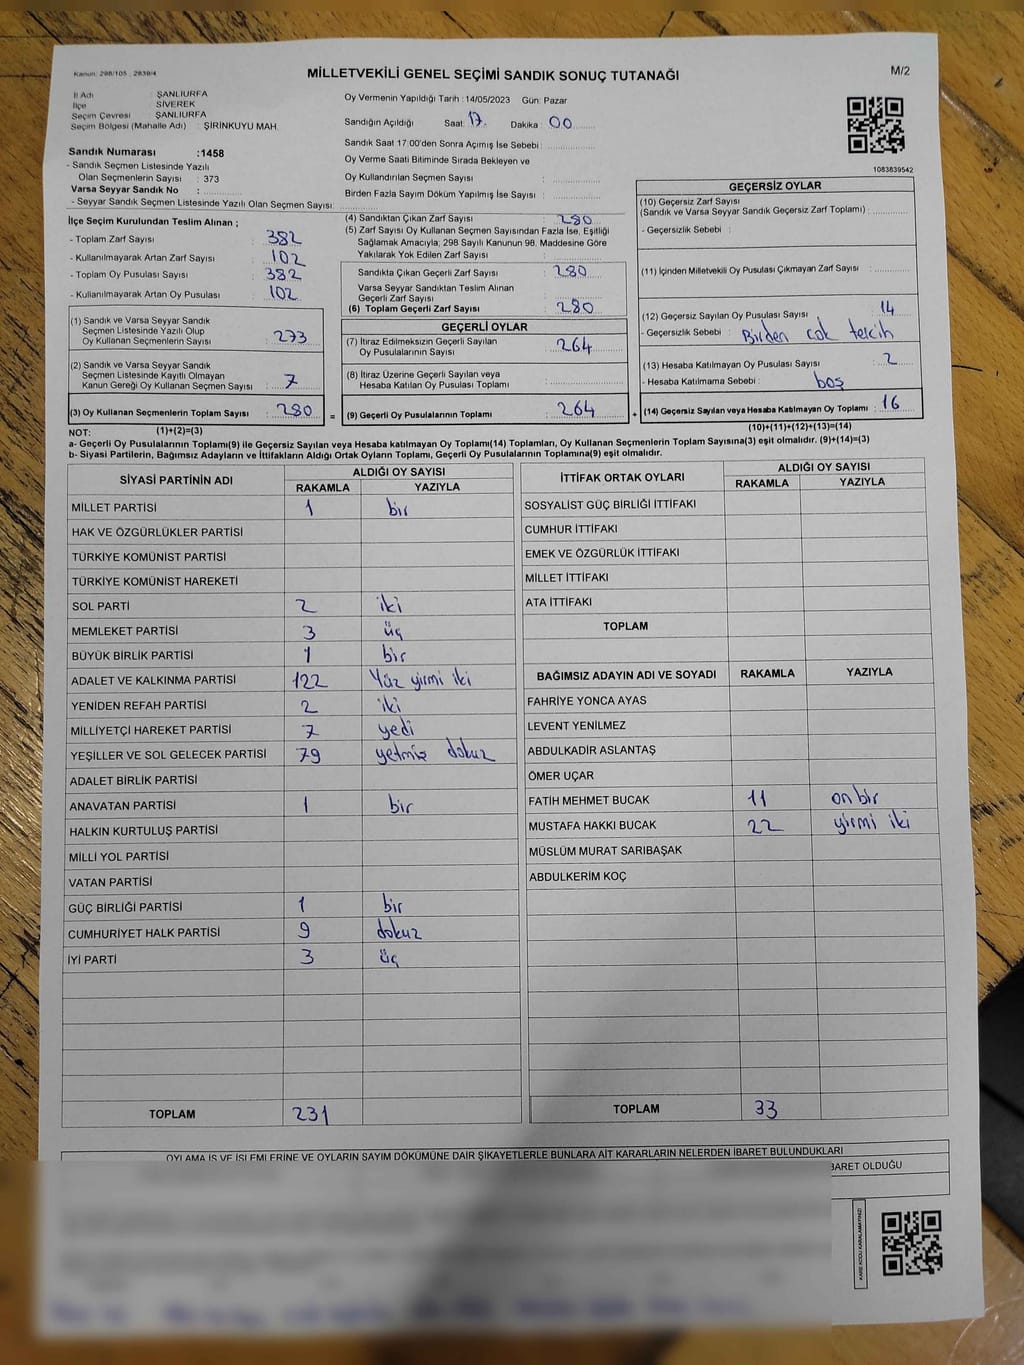 Kanun: 298/105 , 2839/4
MİLLETVEKİLİ GENEL SEÇİMİ SANDIK SONUÇ TUTANAĞI
M/2
İl Adı : ŞANLIURFA
İlçe : SİVEREK
Seçim Çevresi : ŞANLIURFA
Seçim Bölgesi (Mahalle Adı) : ŞİRİNKUYU MAH.
Oy Vermenin Yapıldığı Tarih : 14/05/2023 Gün: Pazar
Sandığın Açıldığı Saat: 17 Dakika : 00
Sandık Saat 17:00'den Sonra Açımış İse Sebebi :
Oy Verme Saati Bitiminde Sırada Bekleyen ve
Oy Kullandırılan Seçmen Sayısı :
Birden Fazla Sayım Döküm Yapılmış İse Sayısı :
1083839542
Sandık Numarası :1458
- Sandık Seçmen Listesinde Yazılı
Olan Seçmenlerin Sayısı : 373
Varsa Seyyar Sandık No :
- Seyyar Sandık Seçmen Listesinde Yazılı Olan Seçmen Sayısı:
İlçe Seçim Kurulundan Teslim Alınan ;
- Toplam Zarf Sayısı : 382
- Kullanılmayarak Artan Zarf Sayısı : 102
- Toplam Oy Pusulası Sayısı : 382
- Kullanılmayarak Artan Oy Pusulası : 102
(1) Sandık ve Varsa Seyyar Sandık
Seçmen Listesinde Yazılı Olup
Oy Kullanan Seçmenlerin Sayısı : 273
(2) Sandık ve Varsa Seyyar Sandık
Seçmen Listesinde Kayıtlı Olmayan
Kanun Gereği Oy Kullanan Seçmen Sayısı : 7
(3) Oy Kullanan Seçmenlerin Toplam Sayısı : 280
(1)+(2)=(3)
(4) Sandıktan Çıkan Zarf Sayısı : 280
(5) Zarf Sayısı Oy Kullanan Seçmen Sayısından Fazla İse, Eşitliği
Sağlamak Amacıyla; 298 Sayılı Kanunun 98. Maddesine Göre
Yakılarak Yok Edilen Zarf Sayısı :
Sandıkta Çıkan Geçerli Zarf Sayısı : 280
Varsa Seyyar Sandıktan Teslim Alınan
Geçerli Zarf Sayısı :
(6) Toplam Geçerli Zarf Sayısı : 280
GEÇERLİ OYLAR
(7) İtiraz Edilmeksizin Geçerli Sayılan
Oy Pusulalarının Sayısı : 264
(8) İtiraz Üzerine Geçerli Sayılan veya
Hesaba Katılan Oy Pusulası Toplamı :
= (9) Geçerli Oy Pusulalarının Toplamı : 264
GEÇERSİZ OYLAR
(10) Geçersiz Zarf Sayısı
(Sandık ve Varsa Seyyar Sandık Geçersiz Zarf Toplamı) :
- Geçersizlik Sebebi :
(11) İçinden Milletvekili Oy Pusulası Çıkmayan Zarf Sayısı :
(12) Geçersiz Sayılan Oy Pusulası Sayısı : 14
- Geçersizlik Sebebi : Birden çok tercih
(13) Hesaba Katılmayan Oy Pusulası Sayısı : 2
- Hesaba Katılmama Sebebi : boş
+ (14) Geçersiz Sayılan veya Hesaba Katılmayan Oy Toplamı : 16
(10)+(11)+(12)+(13)=(14)
NOT:
a- Geçerli Oy Pusulalarının Toplamı(9) ile Geçersiz Sayılan veya Hesaba katılmayan Oy Toplamı(14) Toplamları, Oy Kullanan Seçmenlerin Toplam Sayısına(3) eşit olmalıdır. (9)+(14)=(3)
b- Siyasi Partilerin, Bağımsız Adayların ve İttifakların Aldığı Ortak Oyların Toplamı, Geçerli Oy Pusulalarının Toplamına(9) eşit olmalıdır.
SİYASİ PARTİNİN ADI ALDIĞI OY SAYISI
RAKAMLA YAZIYLA
MİLLET PARTİSİ 1 bir
HAK VE ÖZGÜRLÜKLER PARTİSİ
TÜRKİYE KOMÜNİST PARTİSİ
TÜRKİYE KOMÜNİST HAREKETİ
SOL PARTİ 2 iki
MEMLEKET PARTİSİ 3 üç
BÜYÜK BİRLİK PARTİSİ 1 bir
ADALET VE KALKINMA PARTİSİ 122 Yüz yirmi iki
YENİDEN REFAH PARTİSİ 2 iki
MİLLİYETÇİ HAREKET PARTİSİ 7 yedi
YEŞİLLER VE SOL GELECEK PARTİSİ 79 yetmiş dokuz
ADALET BİRLİK PARTİSİ
ANAVATAN PARTİSİ 1 bir
HALKIN KURTULUŞ PARTİSİ
MİLLİ YOL PARTİSİ
VATAN PARTİSİ
GÜÇ BİRLİĞİ PARTİSİ 1 bir
CUMHURİYET HALK PARTİSİ 9 dokuz
İYİ PARTİ 3 üç
TOPLAM 231
İTTİFAK ORTAK OYLARI ALDIĞI OY SAYISI
RAKAMLA YAZIYLA
SOSYALİST GÜÇ BİRLİĞİ İTTİFAKI
CUMHUR İTTİFAKI
EMEK VE ÖZGÜRLÜK İTTİFAKI
MİLLET İTTİFAKI
ATA İTTİFAKI
TOPLAM
BAĞIMSIZ ADAYIN ADI VE SOYADI RAKAMLA YAZIYLA
FAHRİYE YONCA AYAS
LEVENT YENİLMEZ
ABDULKADİR ASLANTAŞ
ÖMER UÇAR
FATİH MEHMET BUCAK 11 on bir
MUSTAFA HAKKI BUCAK 22 yirmi iki
MÜSLÜM MURAT SARIBAŞAK
ABDULKERİM KOÇ
TOPLAM 33
OYLAMA İŞ VE İŞLEMLERİNE VE OYLARIN SAYIM DÖKÜMÜNE DAİR ŞİKAYETLERLE BUNLARA AİT KARARLARIN NELERDEN İBARET BULUNDUKLARI
BARET OLDUĞU
KARE KODU KARALAMAYINIZ!